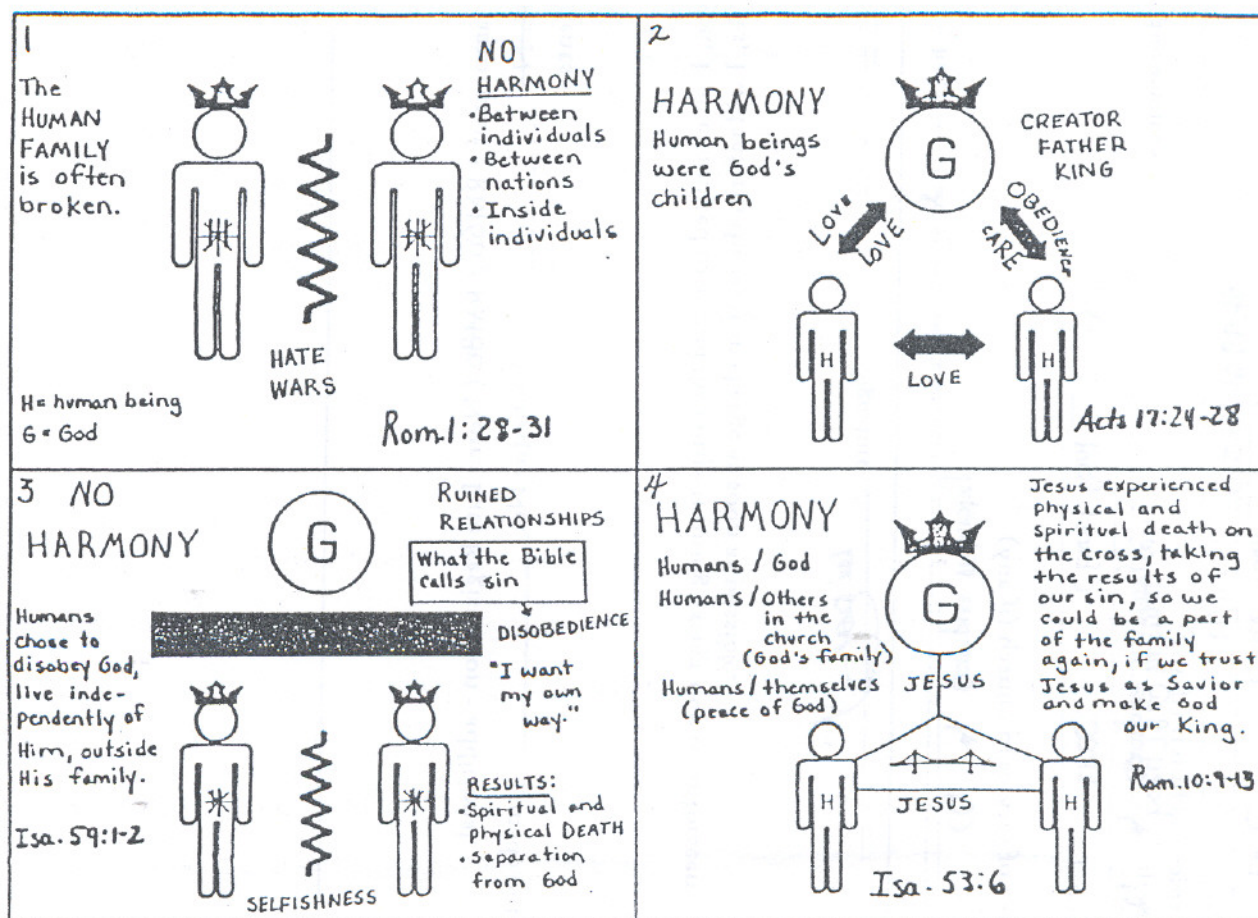 1
The
HUMAN
FAMILY
is often
broken.
NO
HARMONY
• Between
individuals
• Between
nations
• Inside
individuals
H
H
HATE
WARS
H = human being
G = God
Rom. 1:28-31
2
HARMONY
Human beings
were God's
children
G
CREATOR
FATHER
KING
LOVE
LOVE
OBEDIENCE
CARE
H
H
LOVE
Acts 17:24-28
3 NO
HARMONY
G
RUINED
RELATIONSHIPS
What the Bible
calls sin
DISOBEDIENCE
"I want
my own
way."
Humans
chose to
disobey God,
live inde-
pendently of
Him, outside
His family.
Isa. 59:1-2
H
H
SELFISHNESS
RESULTS:
• Spiritual and
physical DEATH
• Separation
from God
4
HARMONY
Humans / God
Humans / Others
in the
church
(God's family)
Humans / themselves
(peace of God)
G
JESUS
H
H
JESUS
Jesus experienced
physical and
spiritual death on
the cross, taking
the results of
our sin, so we
could be a part
of the family
again, if we trust
Jesus as Savior
and make God
our King.
Rom. 10:9-13
Isa. 53:6